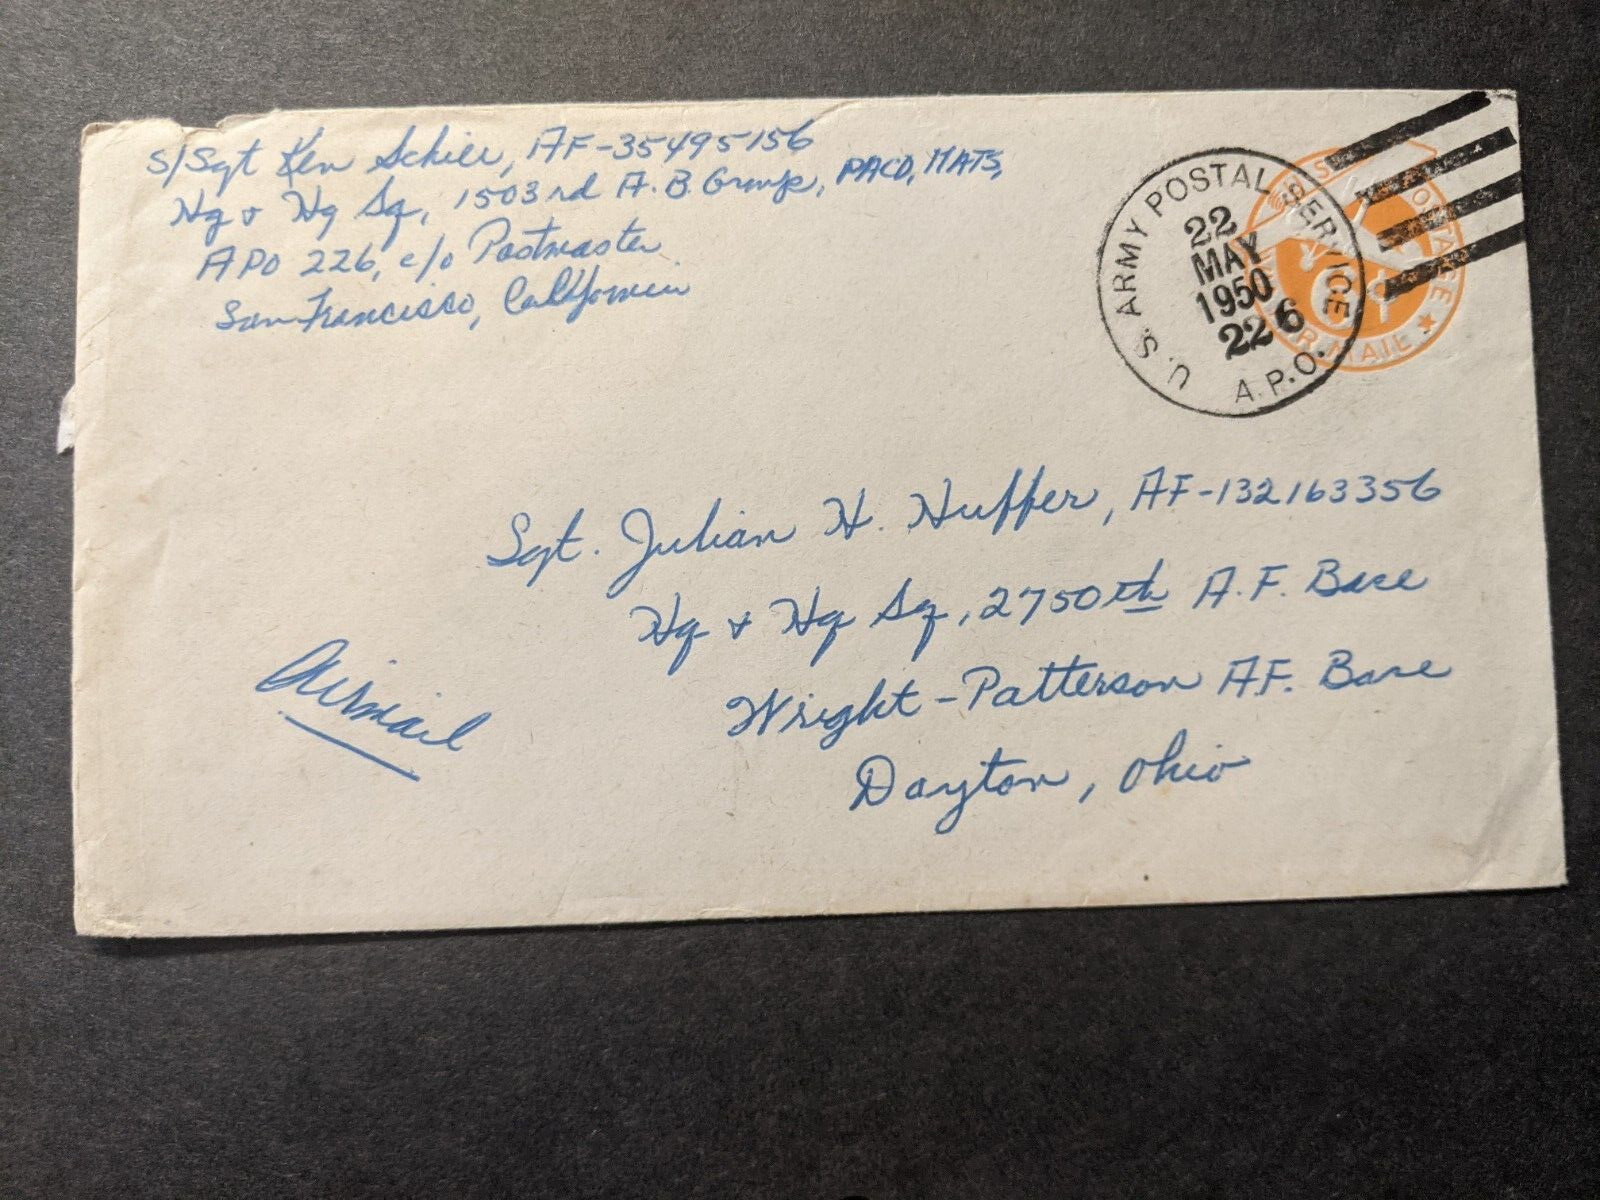 S/Sgt Ken Schier, AF-35495156
Hq & Hq Sq, 1503rd A.B. Group, PACD, MATS,
APO 226, c/o Postmaster
San Francisco, California
U.S. ARMY POSTAL SERVICE
22
MAY
1950
226
A.P.O.
U.S. POSTAGE
6¢
AIR MAIL
Sgt. Julian H. Huffer, AF-132163356
Hq & Hq Sq, 2750th A.F. Base
Wright-Patterson A.F. Base
Dayton, Ohio
Airmail